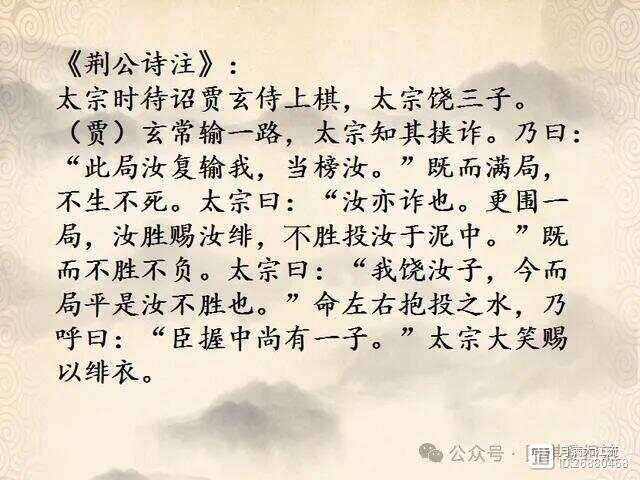 《荆公诗注》：
太宗时待诏贾玄侍上棋，太宗饶三子。
（贾）玄常输一路，太宗知其挟诈。乃曰：
“此局汝复输我，当榜汝。”既而满局，
不生不死。太宗曰：“汝亦诈也。更围一
局，汝胜赐汝绯，不胜投汝于泥中。”既
而不胜不负。太宗曰：“我饶汝子，今而
局平是汝不胜也。”命左右抱投之水，乃
呼曰：“臣握中尚有一子。”太宗大笑赐
以绯衣。
公众号·